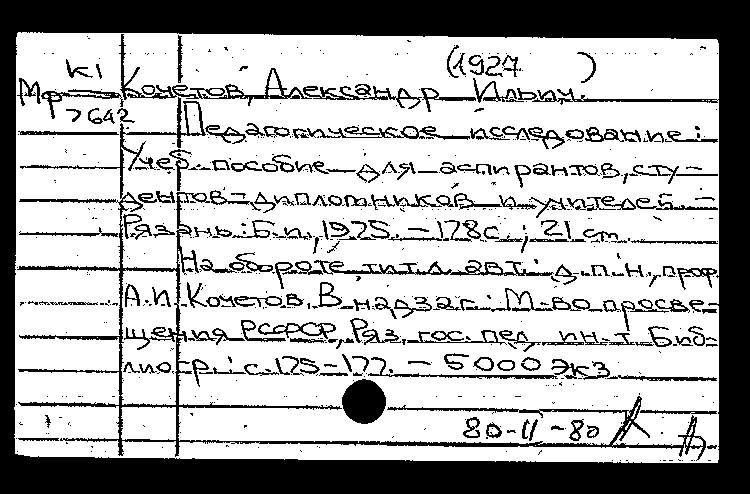 (1927 )
К1
Мф
7642
Кочетов, Александр Ильич.
Педагогическое исследование:
Учеб. пособие для аспирантов, сту-
дентов-дипломников и учителей. –
Рязань: Б.и., 1975. – 178с.; 21 см
На обороте тит.л. авт.: д.п.н., проф.
А.И. Кочетов. В надзаг.: М-во просве-
щения РСФСР, Ряз. гос. пед. ин-т. Биб-
лиогр.: с.175-177. – 5000 экз
80-11-80